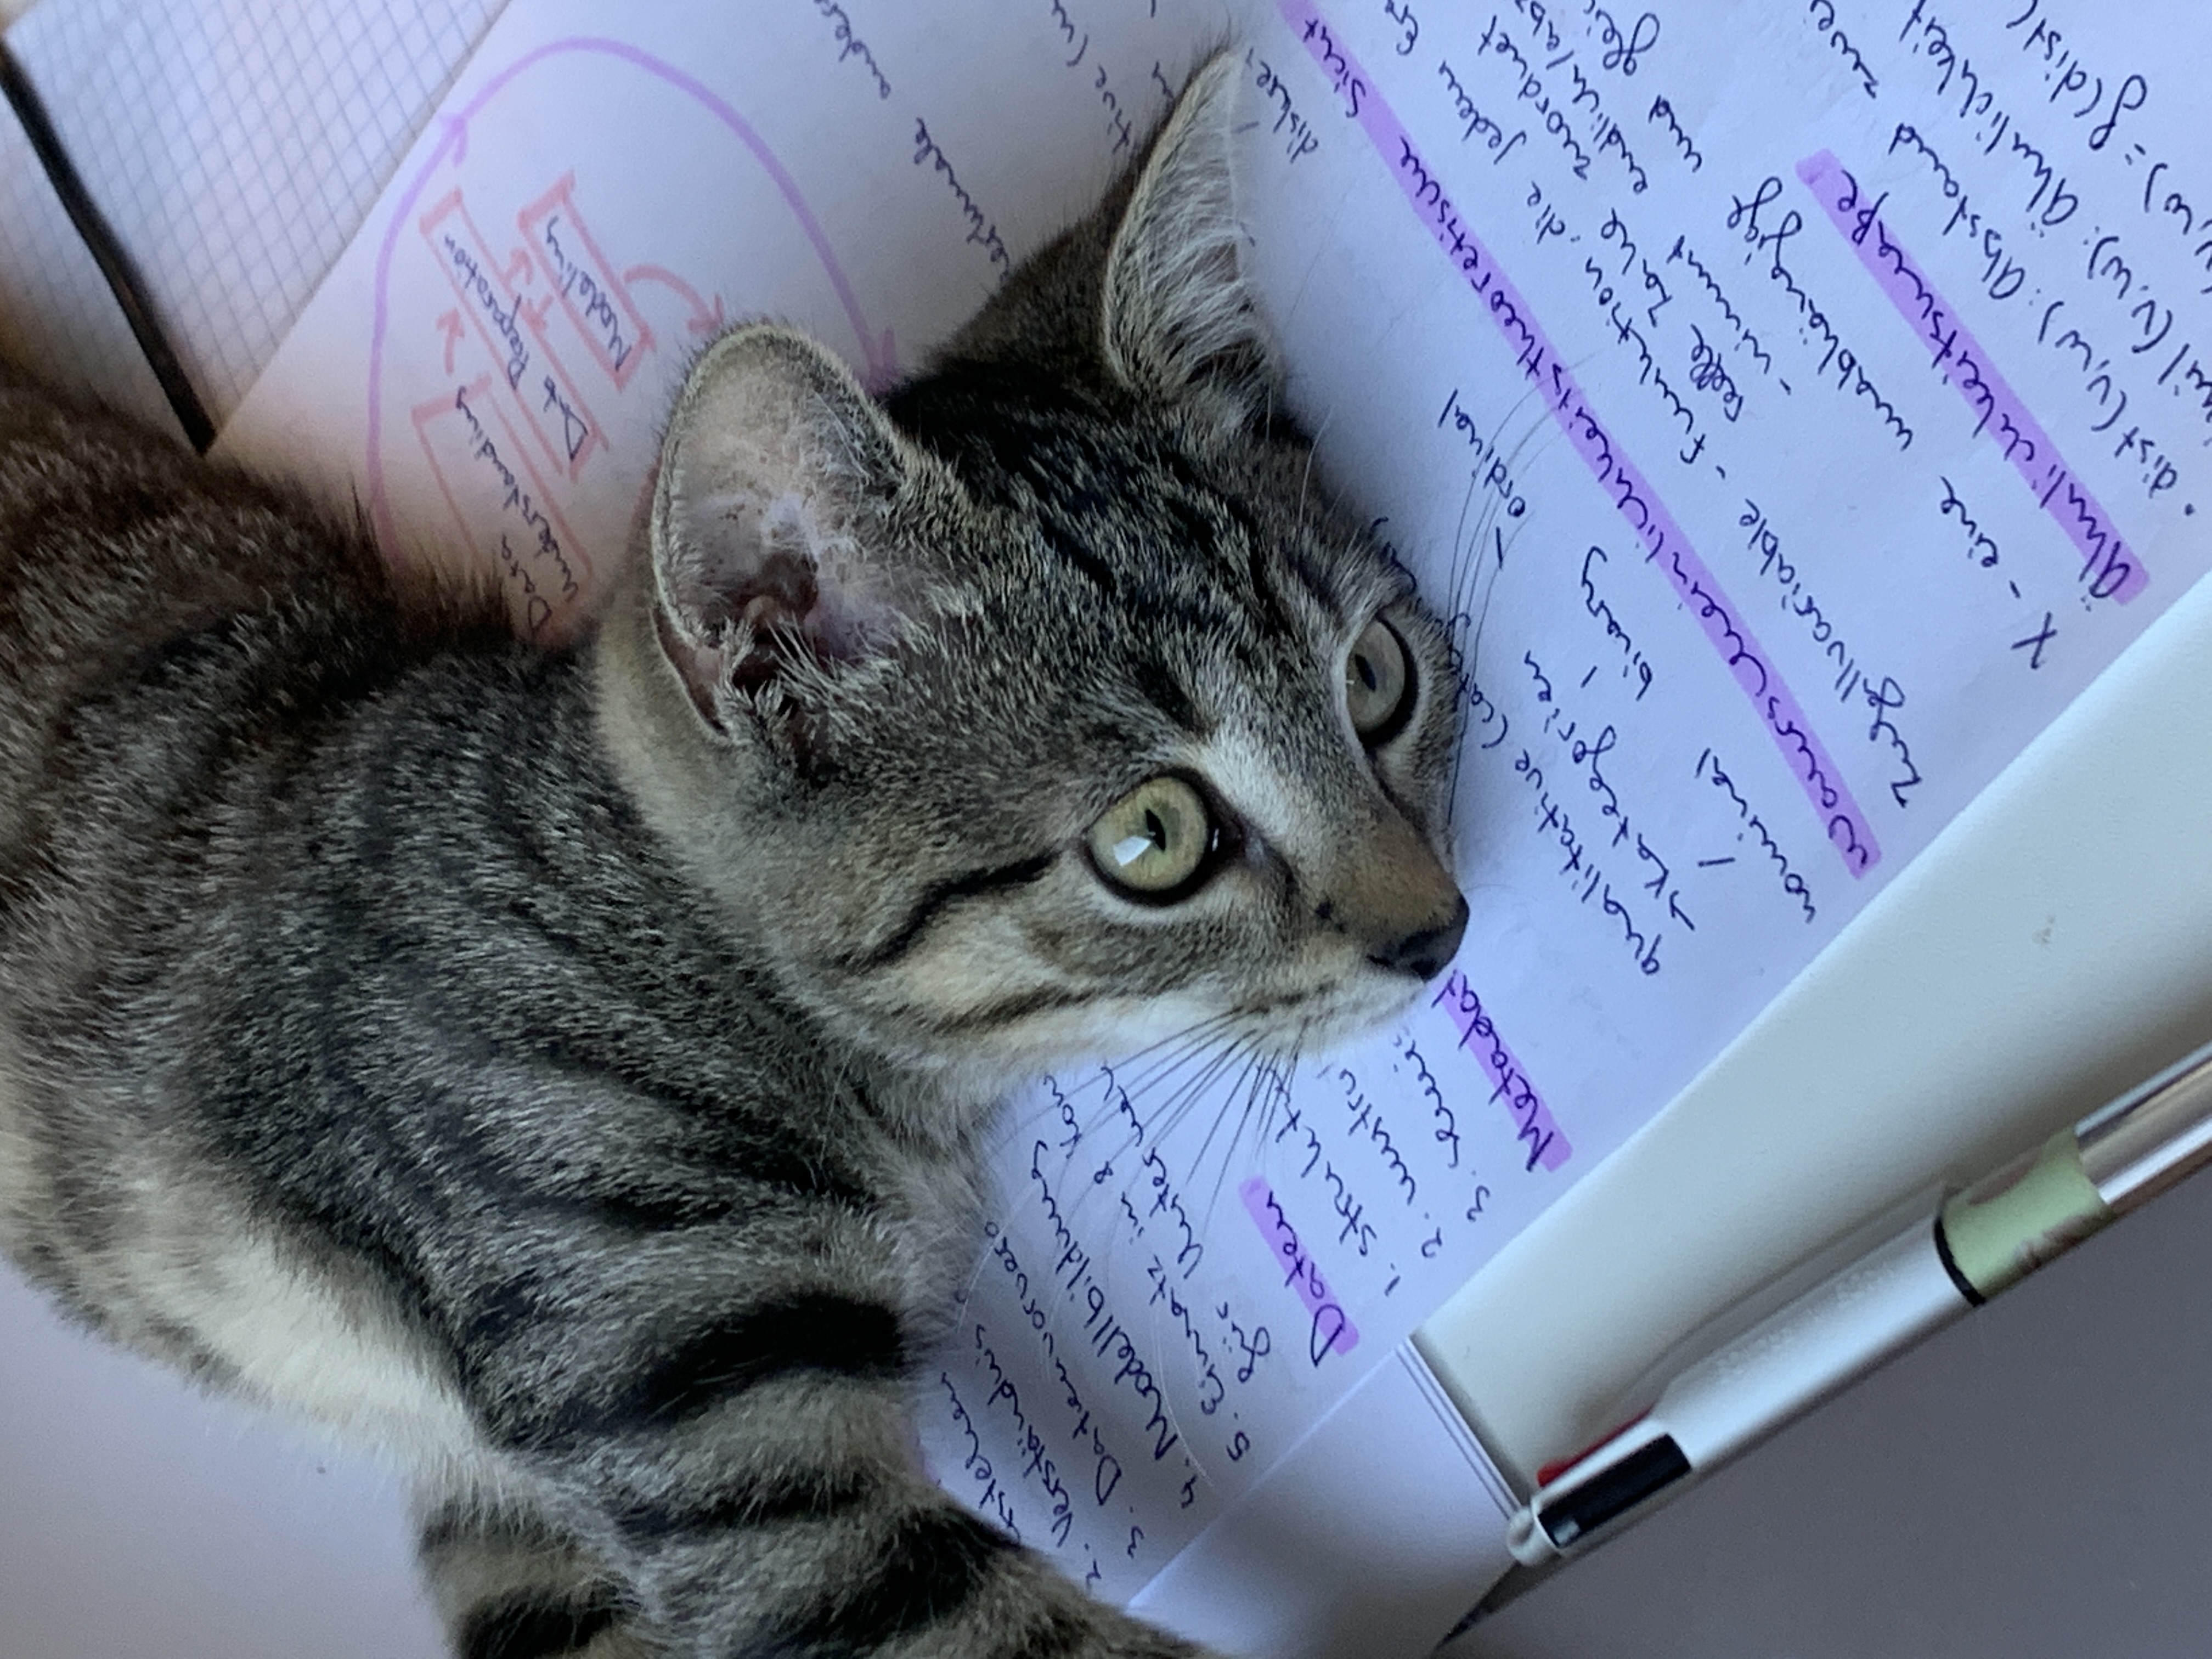 Data
Understanding
Data Preparation
Modeling
2. Verständnis
3. Datenvorver
4. Modellbildung
5. Einsatz im &
für
Daten
1. struktu
2. unstru
3. semis
Metadat
qualitative
→ Kategorien
nominal
binary
ordinal
diskre
Warscheinlichkeitstheoretische Sicht
Zufallvariable - Funktion, die jedem
reelle Zahl zuordnet
- nimmt endlich/abz
X - eine unabhängige und
Ähnlichkeitsmaße
• dist(v,w): Abstand zwei
(v,w): Ähnlichkeit
,w) = f(dist(